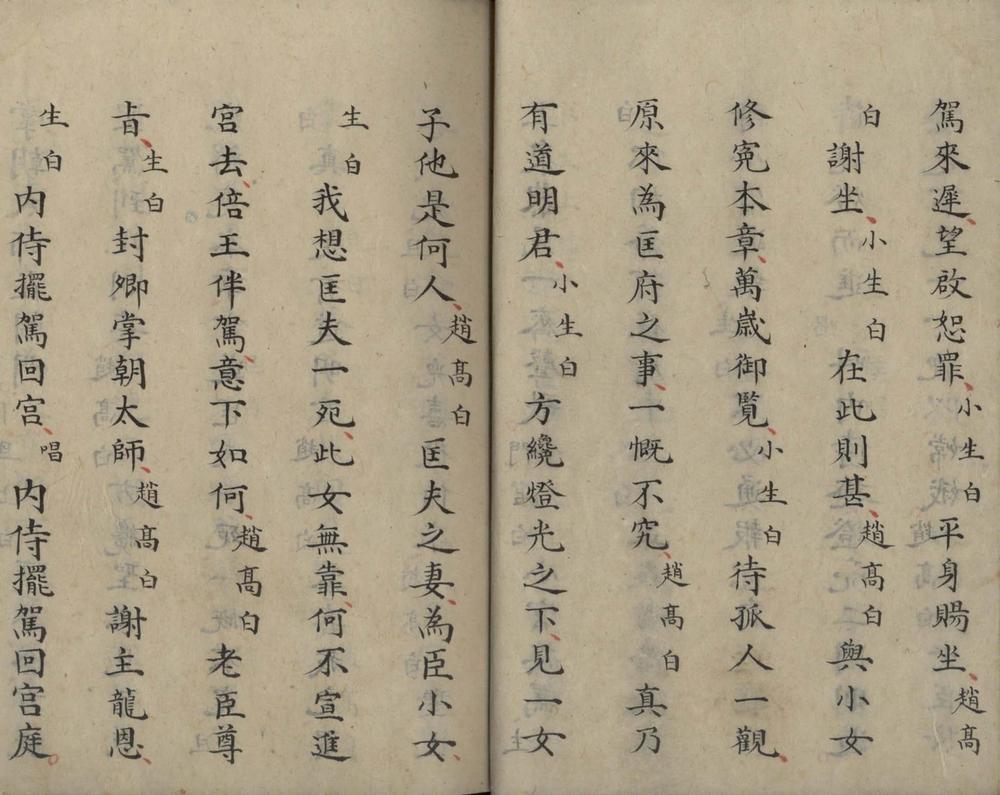 駕來遲、望啟恕罪、小生白平身賜坐、趙髙
白謝坐、小生白在此則甚、趙髙白與小女
修冤本章、萬歲御覧、小生白待孤人一觀、
原來為匡府之事、一慨不究、趙髙白真乃
有道明君、小生白方纔燈光之下、見一女
子他是何人、趙髙白匡夫之妻、為臣小女、
生白我想匡夫一死、此女無靠、何不宣進
宮去、倍王伴駕、意下如何、趙髙白老臣尊
㫖、生白封卿掌朝太師、趙髙白謝主龍恩、
生白内侍擺駕回宮、唱内侍擺駕回宮庭。